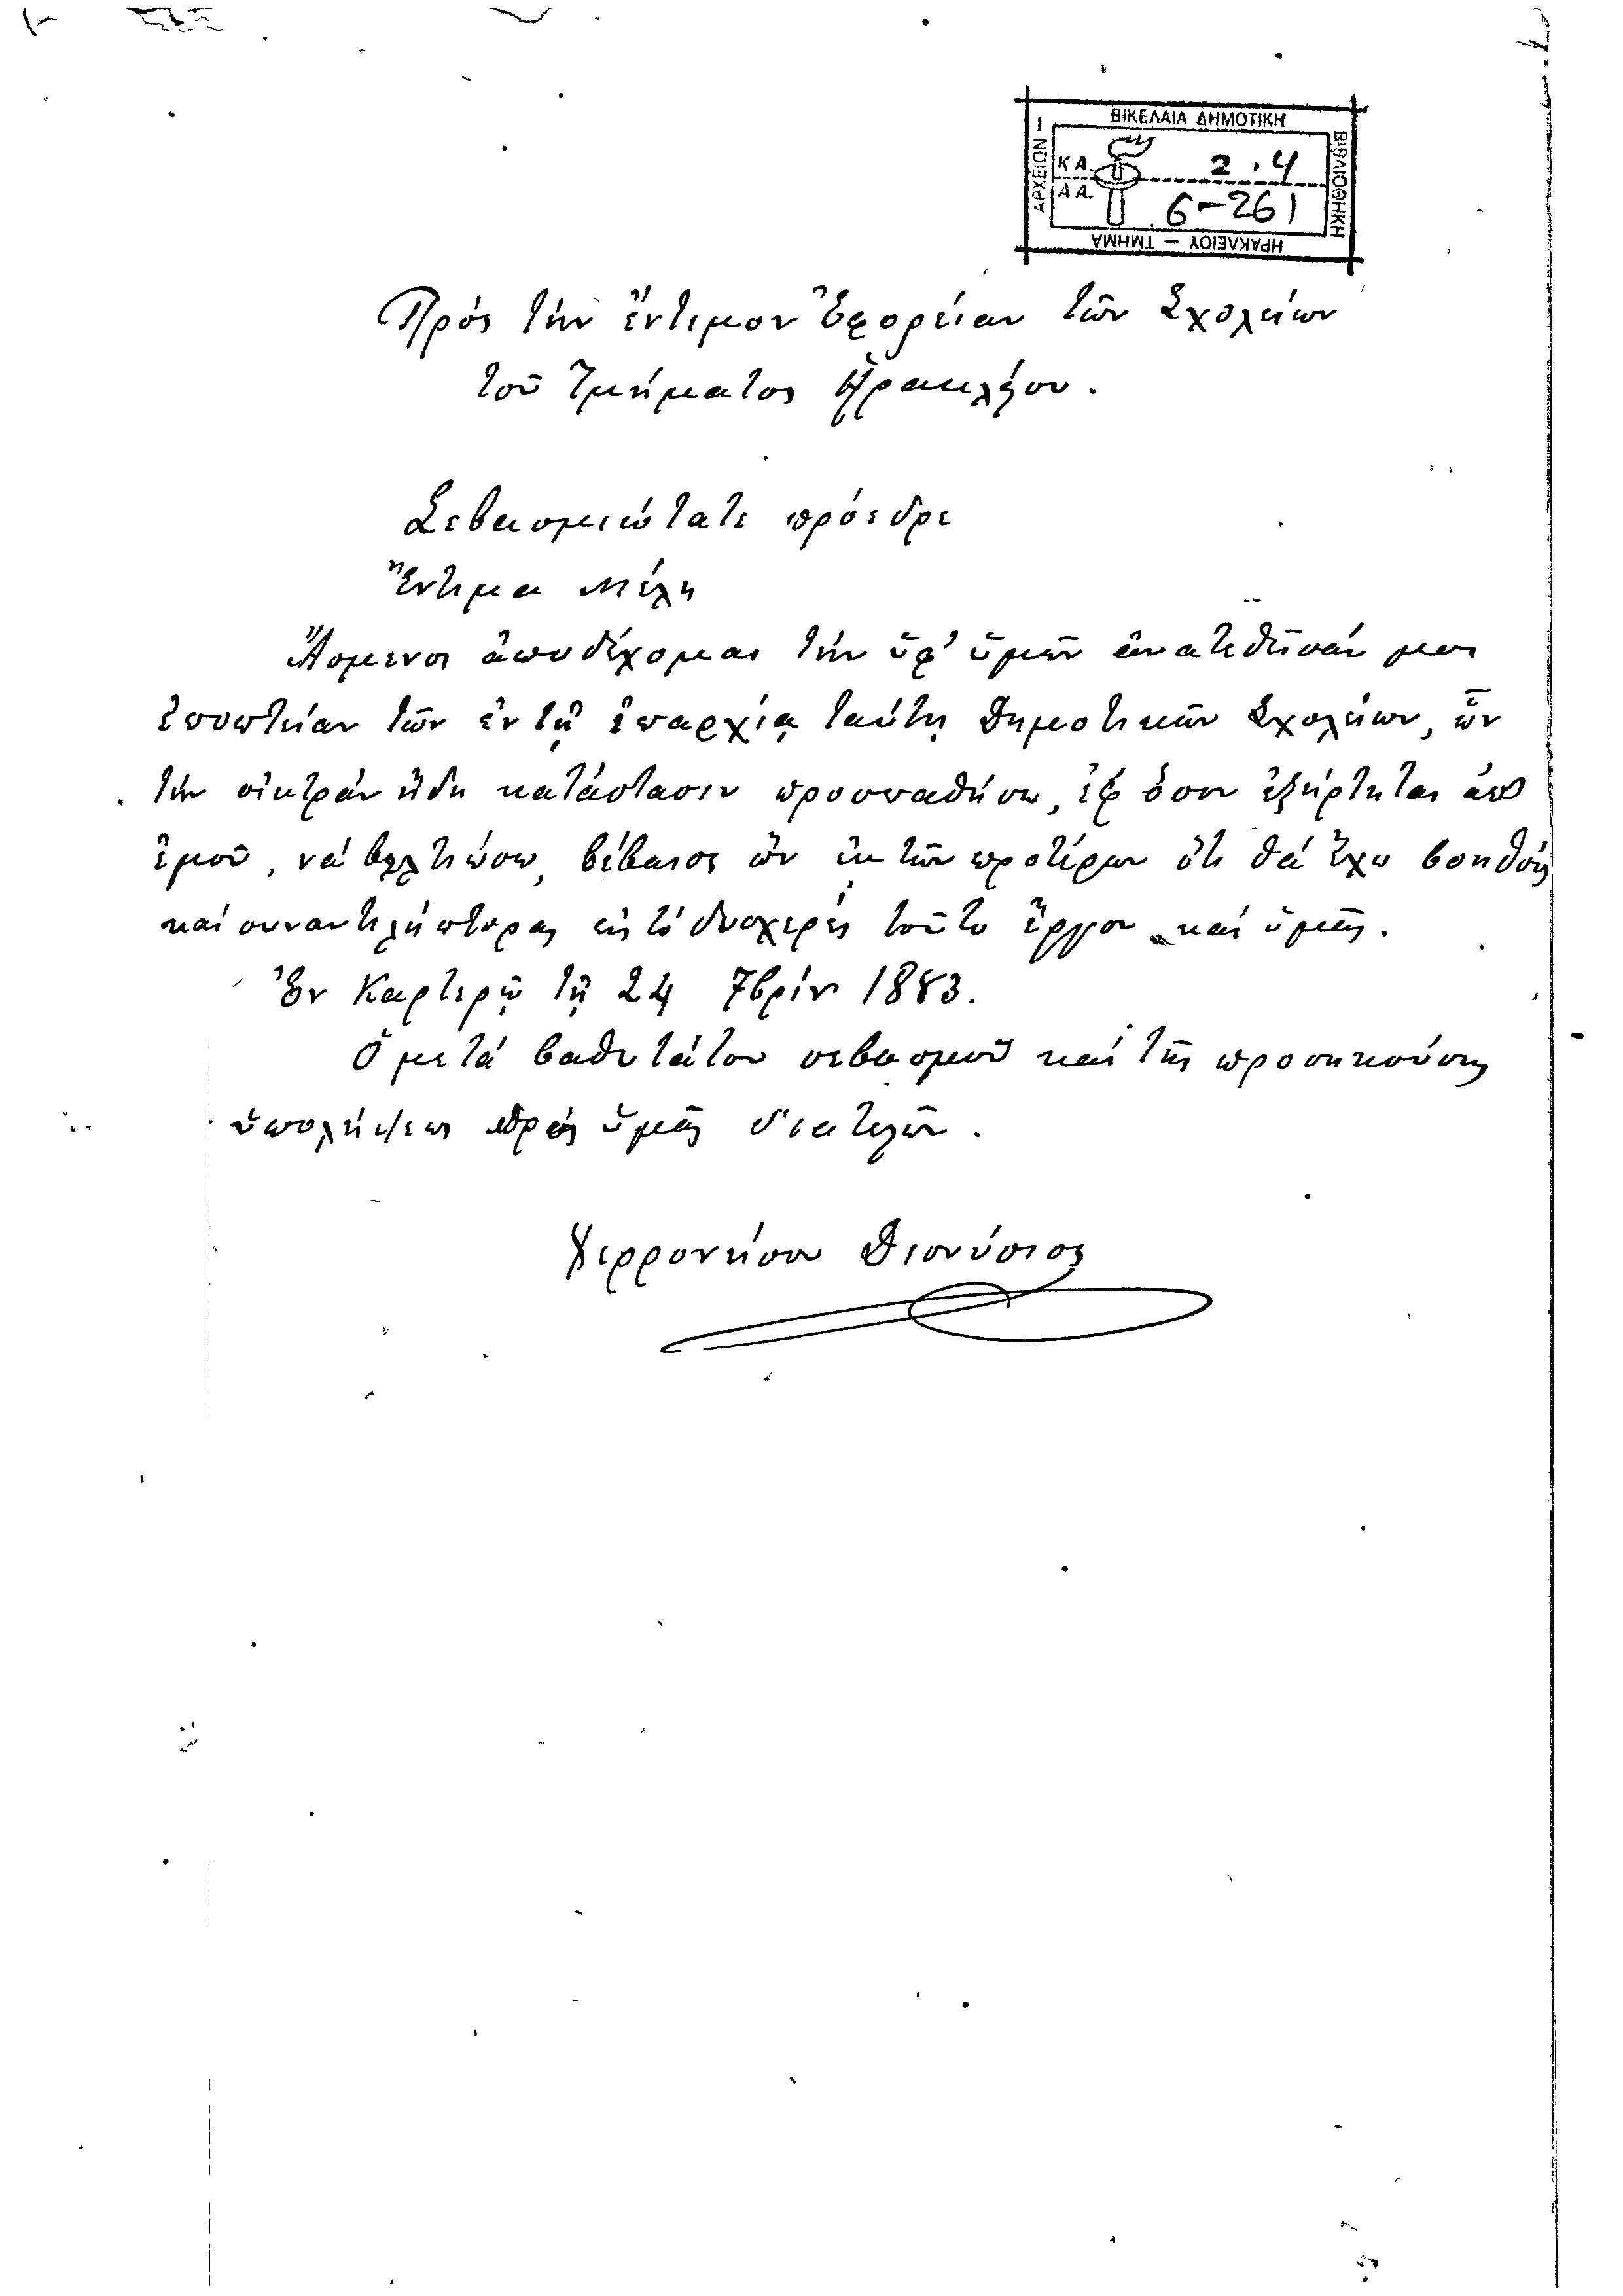 ΒΙΚΕΛΑΙΑ ΔΗΜΟΤΙΚΗ
ΒΙΒΛΙΟΘΗΚΗ
ΗΡΑΚΛΕΙΟΥ — ΤΜΗΜΑ
ΑΡΧΕΙΩΝ —
Κ Α. 2.4
Α Α. 6-261
Πρός τήν ἔντιμον Ἐφορείαν τῶν Σχολείων
τοῦ Τμήματος Ἡρακλείου.
Σεβασμιώτατε πρόεδρε
Ἔντιμα Μέλη
Ἄσμενος ἀποδέχομαι τήν ὑφ' ὑμῶν ἀνατεθεῖσάν μοι
ἐποπτείαν τῶν ἐν τῇ ἐπαρχίᾳ ταύτῃ Δημοτικῶν Σχολείων, ὧν
τήν οἰκτράν ἤδη κατάστασιν προσπαθήσω, ἐφ ὅσον ἐξήρτηται ἀπ
ἐμοῦ, νά βελτιώσω, βέβαιος ὤν ἐκ τῶν προτέρων ὅτι θά ἔχω βοηθούς
καί συναντιλήπτορας εἰς τό δυσχερές τοῦτο ἔργον καί ὑμᾶς.
Ἐν Καρτερῷ τῇ 24 7βρίν 1883.
Ὁ μετά βαθυτάτου σεβασμοῦ καί τῆς προσηκούσης
ὑπολήψεως πρός ὑμᾶς διατελῶν.
Χερρονήσου Διονύσιος